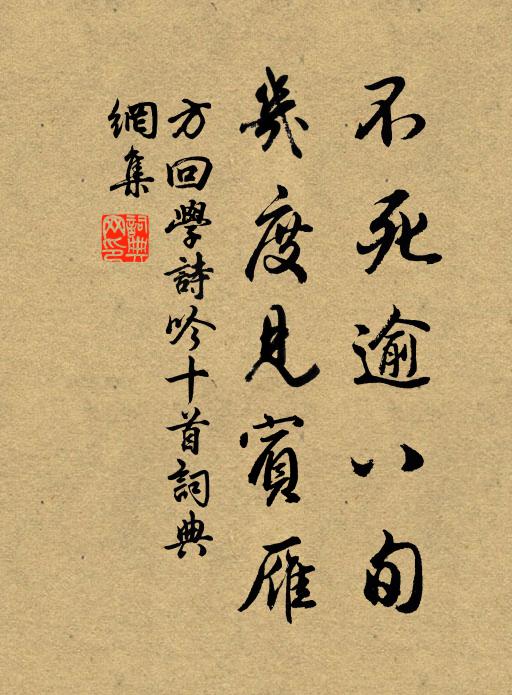 不死逾八旬
幾度見賓雁
方回學詩吟十首詞典
網集
詞典
网印